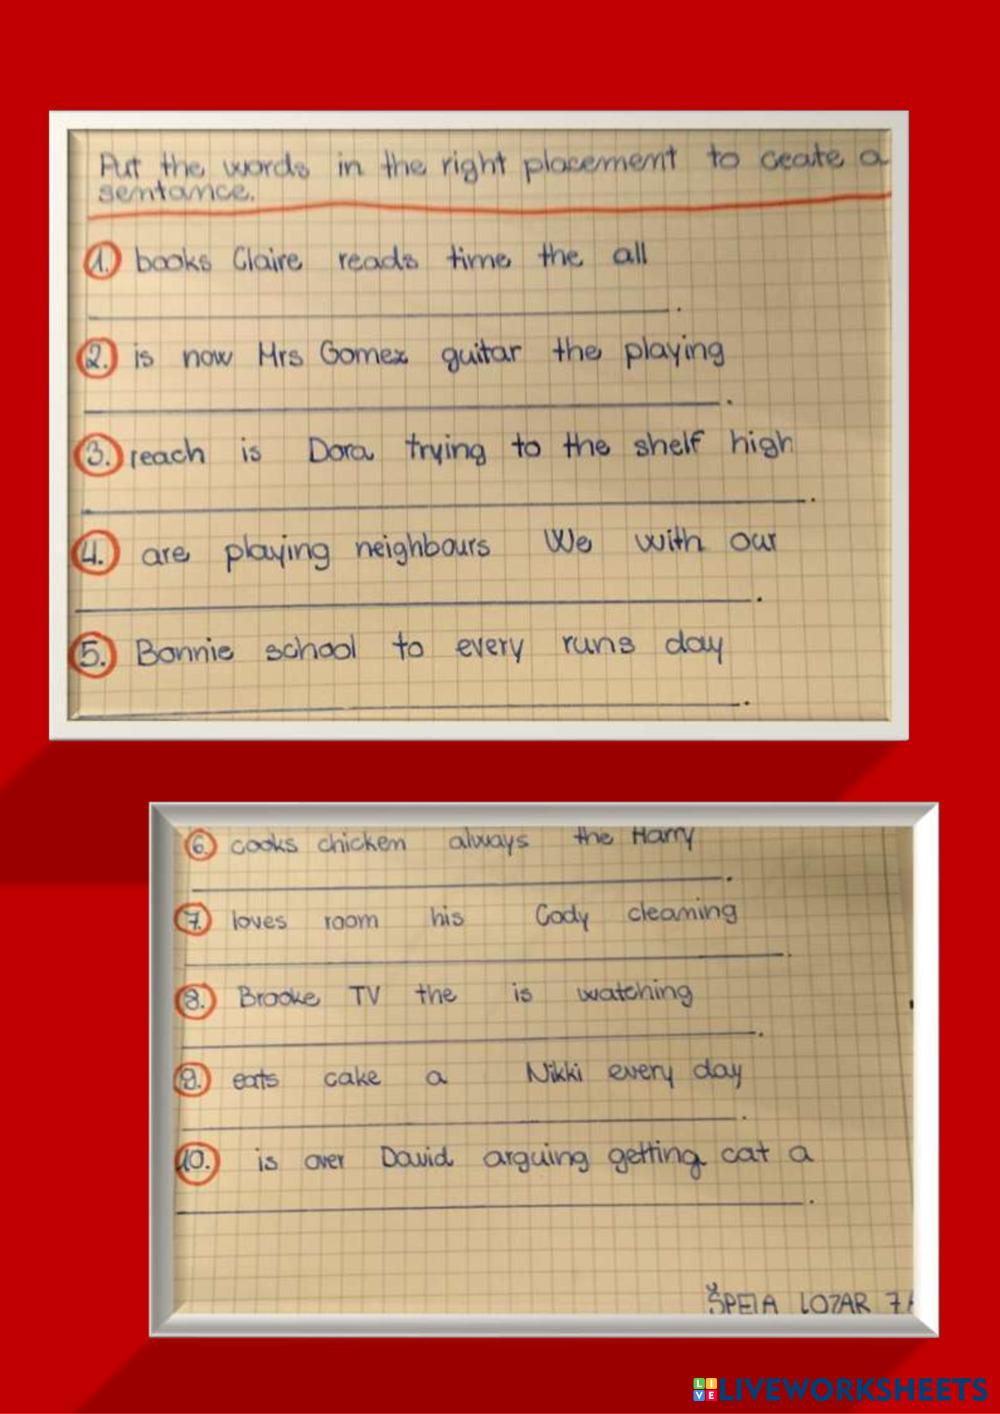 Put the words in the right placement to ceate a
sentance.
1. books Claire reads time the all
.
2. is now Mrs Gomez guitar the playing
.
3. reach is Dora trying to the shelf high
.
4. are playing neighbours We with our
.
5. Bonnie school to every runs day
.
6. cooks chicken always the Harry
.
7. loves room his Cody cleaning
.
8. Brooke TV the is watching
.
9. eats cake a Nikki every day
.
10. is over David arguing getting cat a
.
ŠPELA LOZAR
LIVEWORKSHEETS